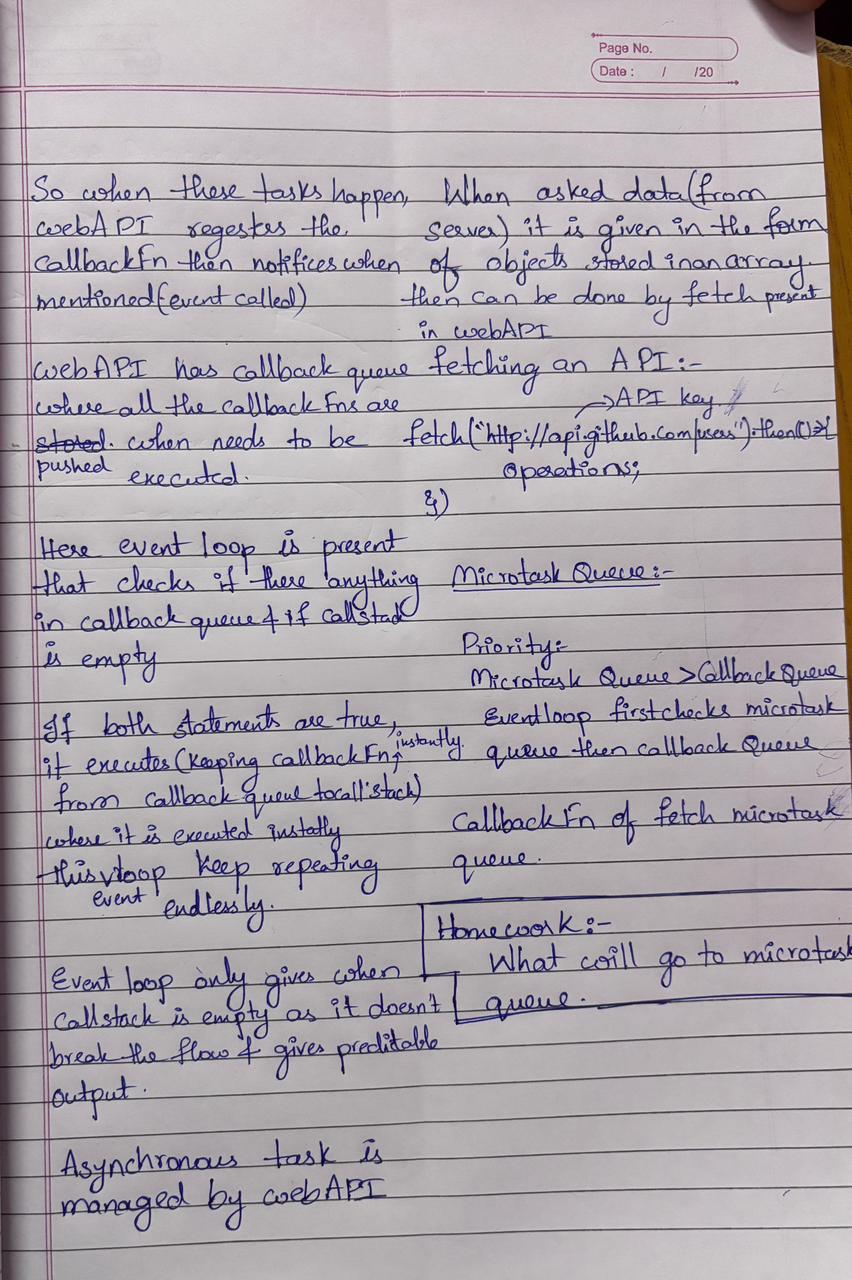 Page No.
Date : / /20
So when these tasks happen,
webAPI regesters the
CallbackFn then notifices when
mentioned (event called)
webAPI has callback queue
where all the callback Fns are
stored. when needs to be
pushed executed.
Here event loop is present
that checks if there anything
in callback queue & if callstack
is empty
If both statements are true,
it executes (keeping callback Fn instantly
from callback queue to call stack)
where it is executed instatly
this event loop keep repeating
endlessly.
Event loop only gives when
Callstack is empty as it doesn't
break the flow & gives preditable
output.
Asynchronous task is
managed by webAPI
When asked data (from
server) it is given in the form
of objects stored in an array.
then can be done by fetch present
in webAPI
fetching an API:-
→ API key
fetch("http://api.github.com/users").then(()=>{
Operations;
})
Microtask Queue:-
Priority:-
Microtask Queue > Callback Queue
Eventloop first checks microtask
queue then callback Queue
Callback Fn of fetch microtask
queue.
Homework:-
What will go to microtask
queue.